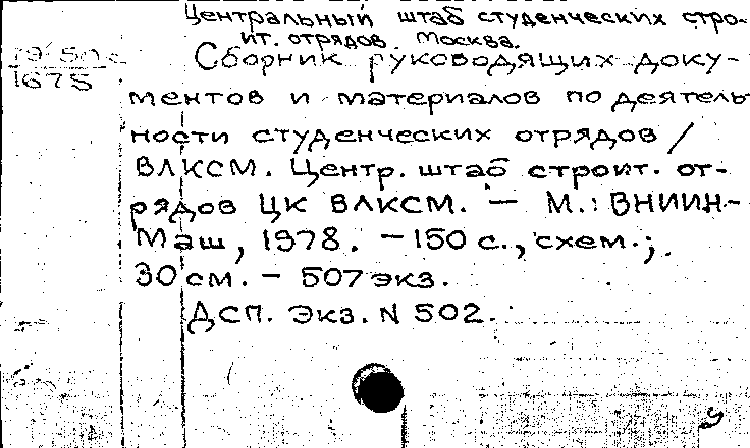 Центральный штаб студенческих стро-
ит. отрядов. Москва.
Сборник руководящих доку-
1675
ментов и материалов по деятель
ности студенческих отрядов /
ВЛКСМ. Центр. штаб строит. от-
рядов ЦК ВЛКСМ. — М.: ВНИИН-
Маш, 1978. — 150 с., схем.;
30 см. — 507 экз.
ДСП. Экз. N 502.